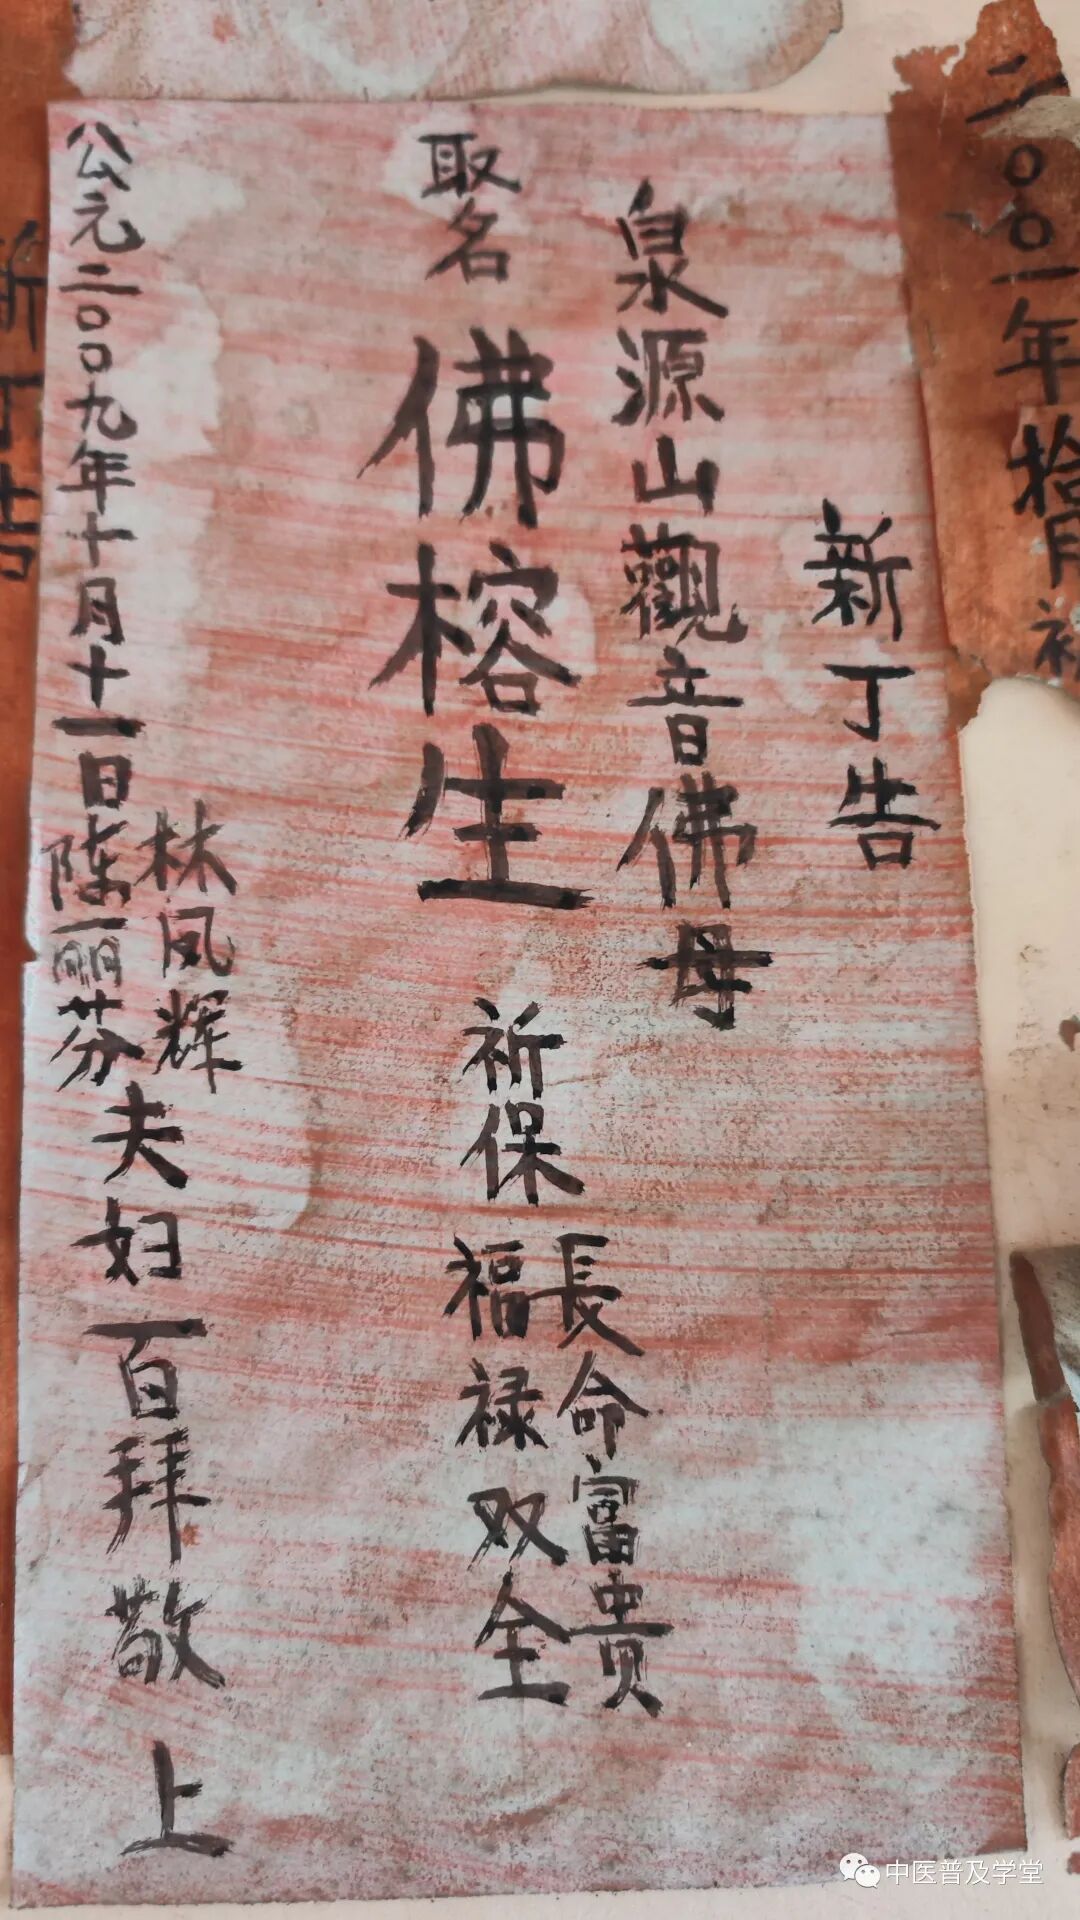 二〇〇一年拾月
新丁告
泉源山觀音佛母
取名 佛榕生 祈保
長命富贵
福禄双全
公元二〇〇九年十月十一日
林凤辉
陈丽芬
夫妇百拜敬上
新丁告
中医普及学堂